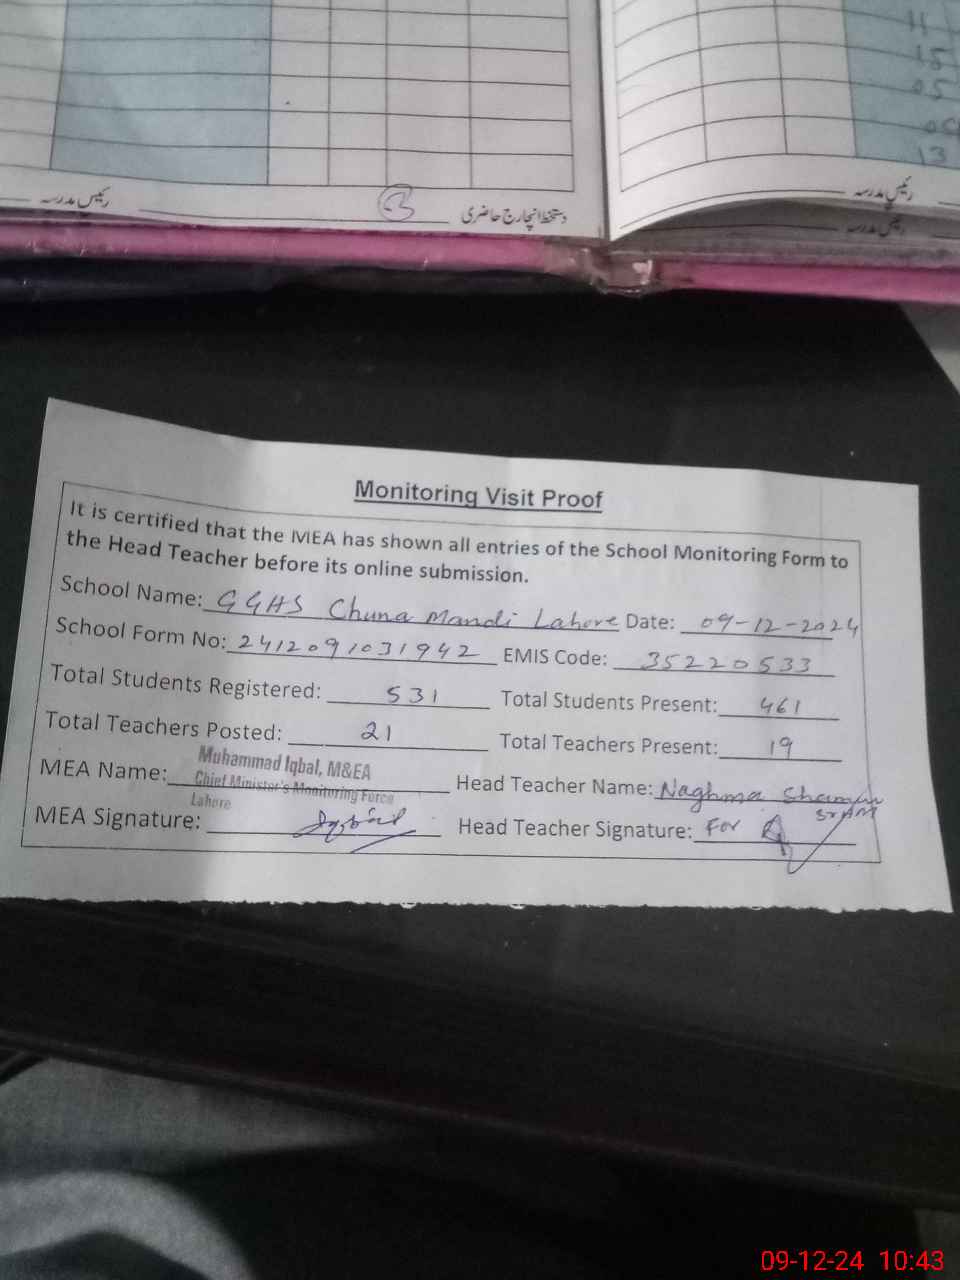 11
15
05
13
رئیس مدرسہ
دستخط انچارج حاضری
رئیس مدرسہ
رئیس مدرسہ
Monitoring Visit Proof
It is certified that the MEA has shown all entries of the School Monitoring Form to
the Head Teacher before its online submission.
School Name: GGHS Chuna Mandi Lahore Date: 09-12-2024
School Form No: 2412091031942 EMIS Code: 35220533
Total Students Registered: 531 Total Students Present: 461
Total Teachers Posted: 21 Total Teachers Present: 19
Muhammad Iqbal, M&EA
MEA Name: Chief Minister's Monitoring Force Head Teacher Name: Naghma
Lahore
MEA Signature: Iqbal Head Teacher Signature: For
09-12-24 10:43